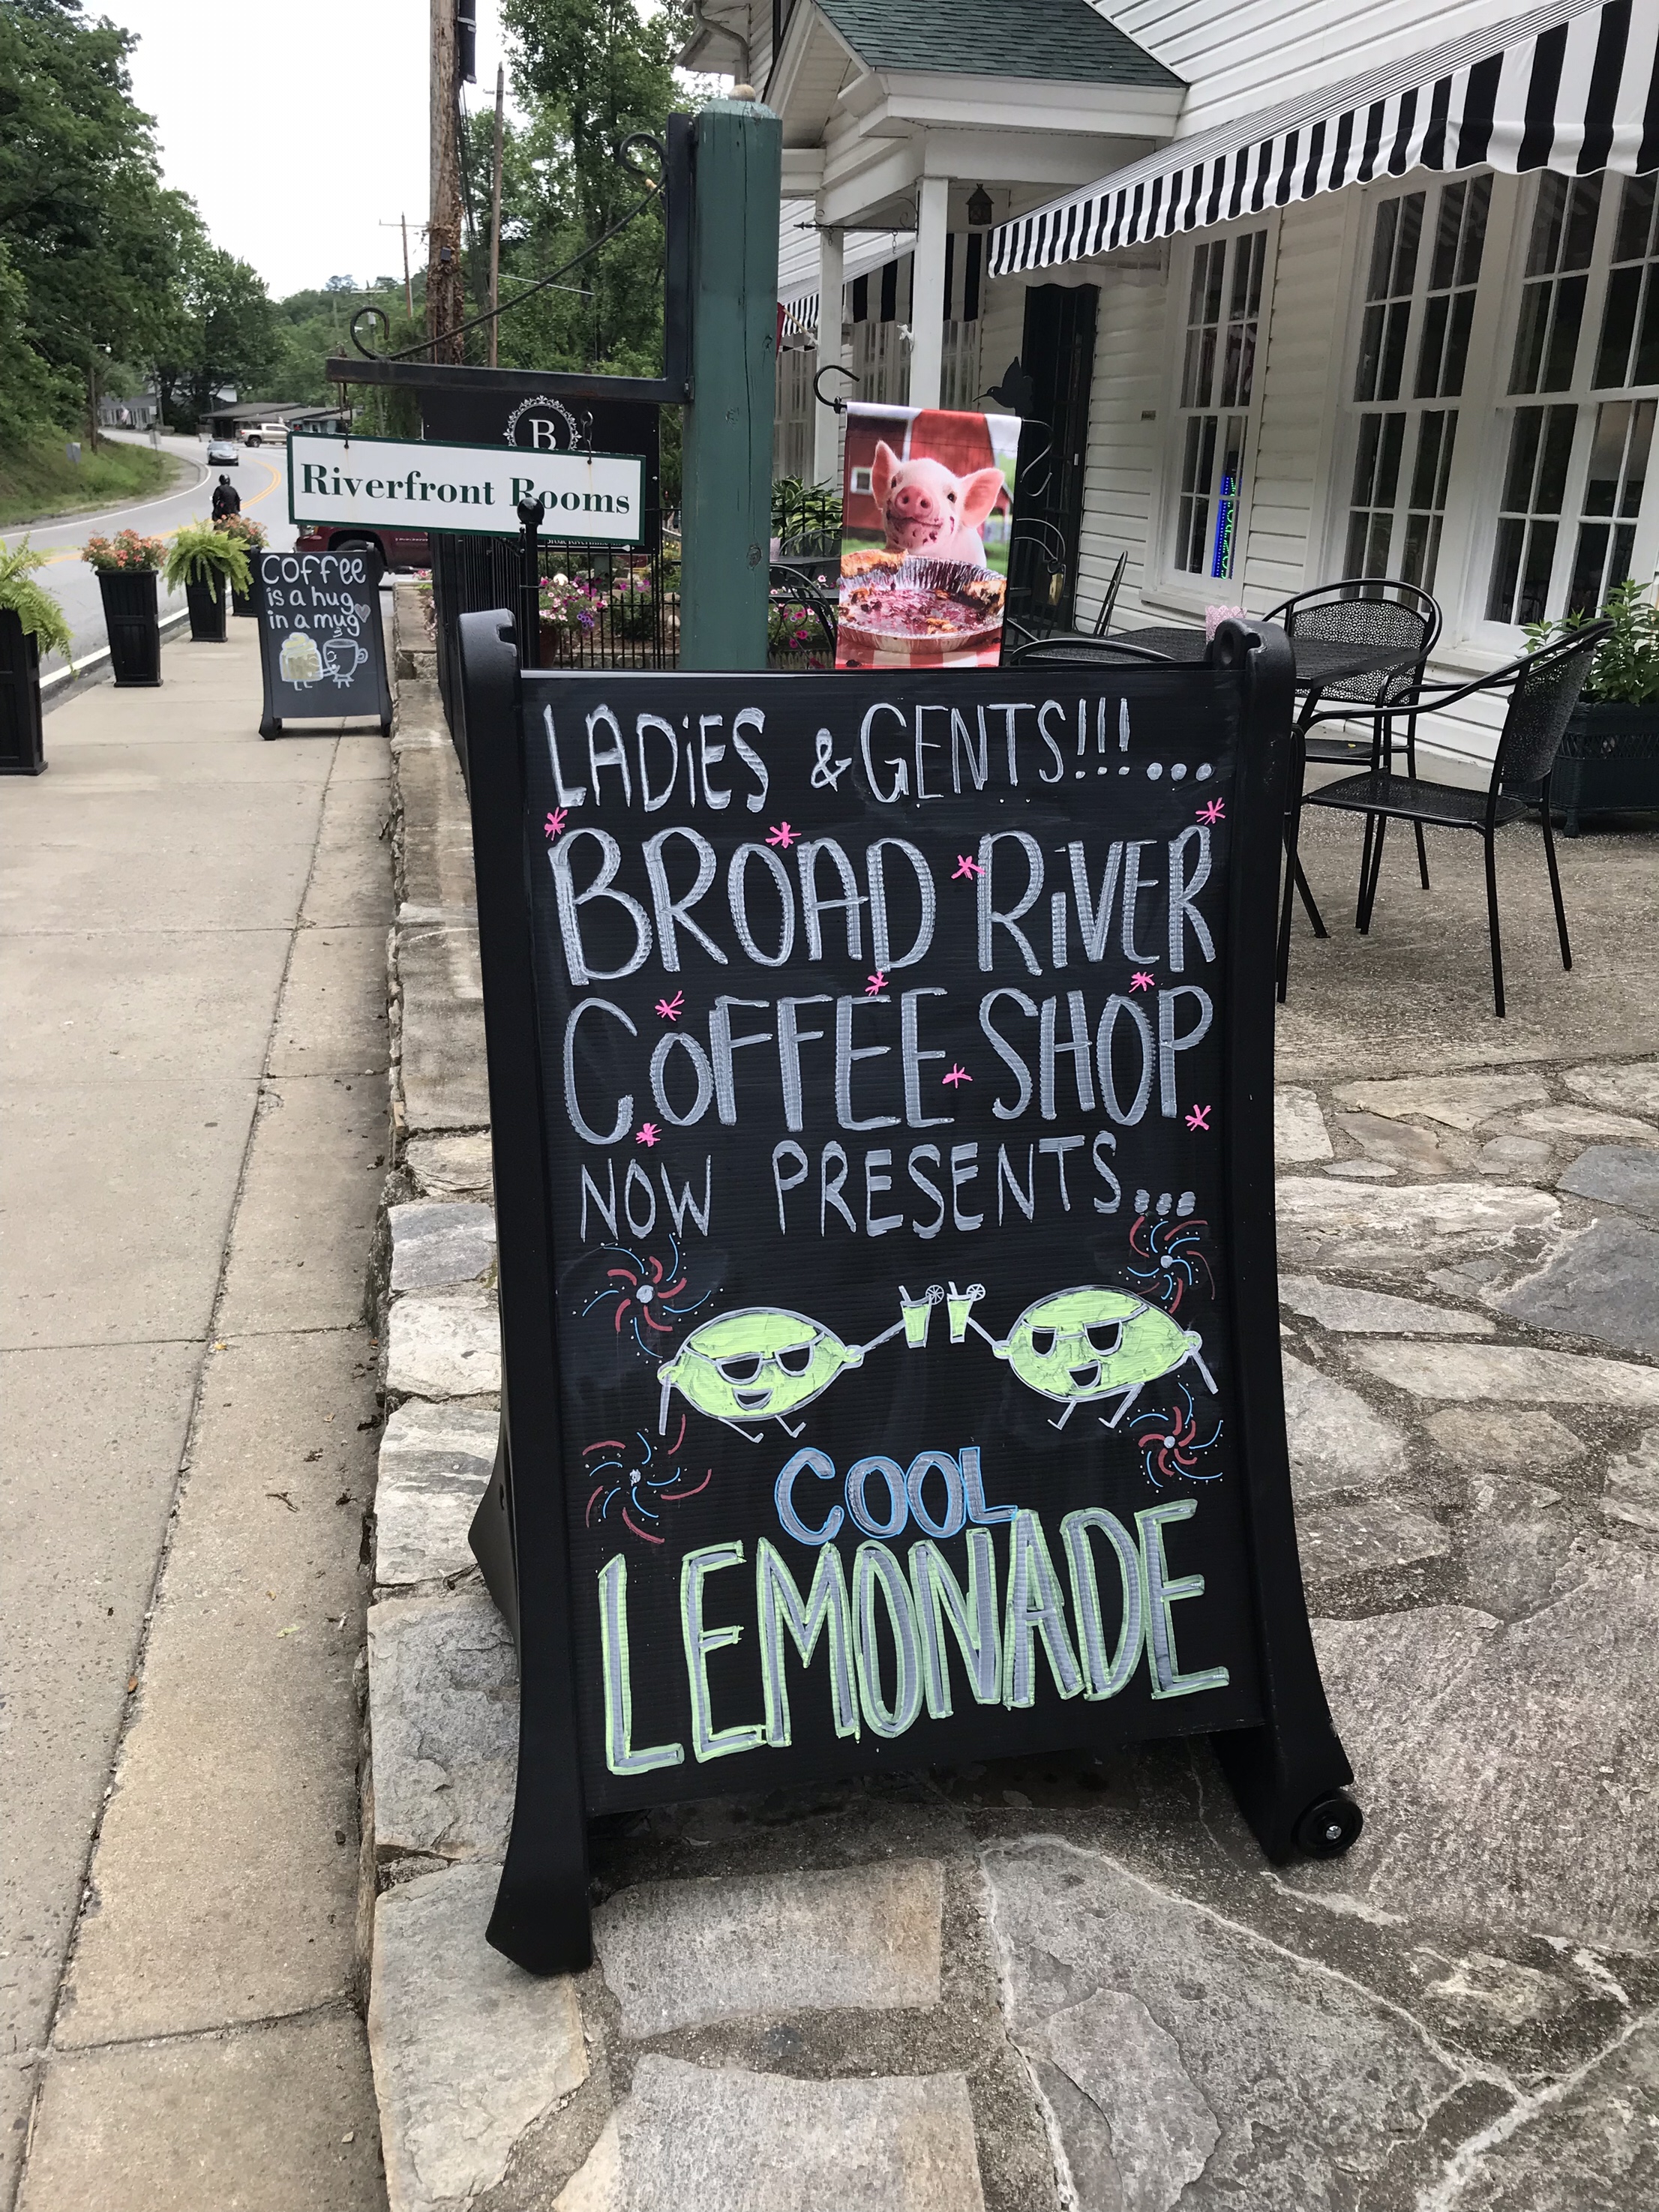 B
Riverfront Rooms
Coffee
is a hug
in a mug
LADIES & GENTS!!!...
BROAD RIVER
COFFEE SHOP
NOW PRESENTS...
COOL
LEMONADE